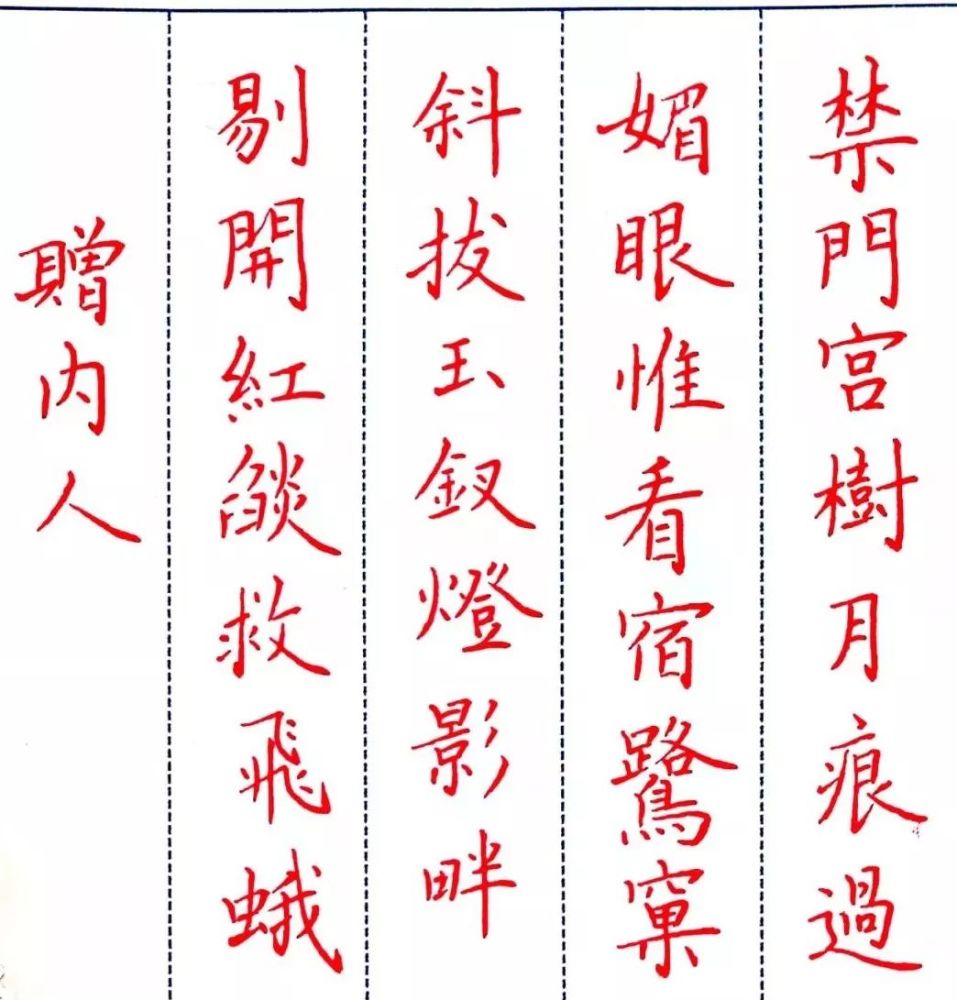 禁門宮樹月痕過
媚眼惟看宿鷺窠
斜拔玉釵燈影畔
剔開紅燄救飛蛾
贈内人